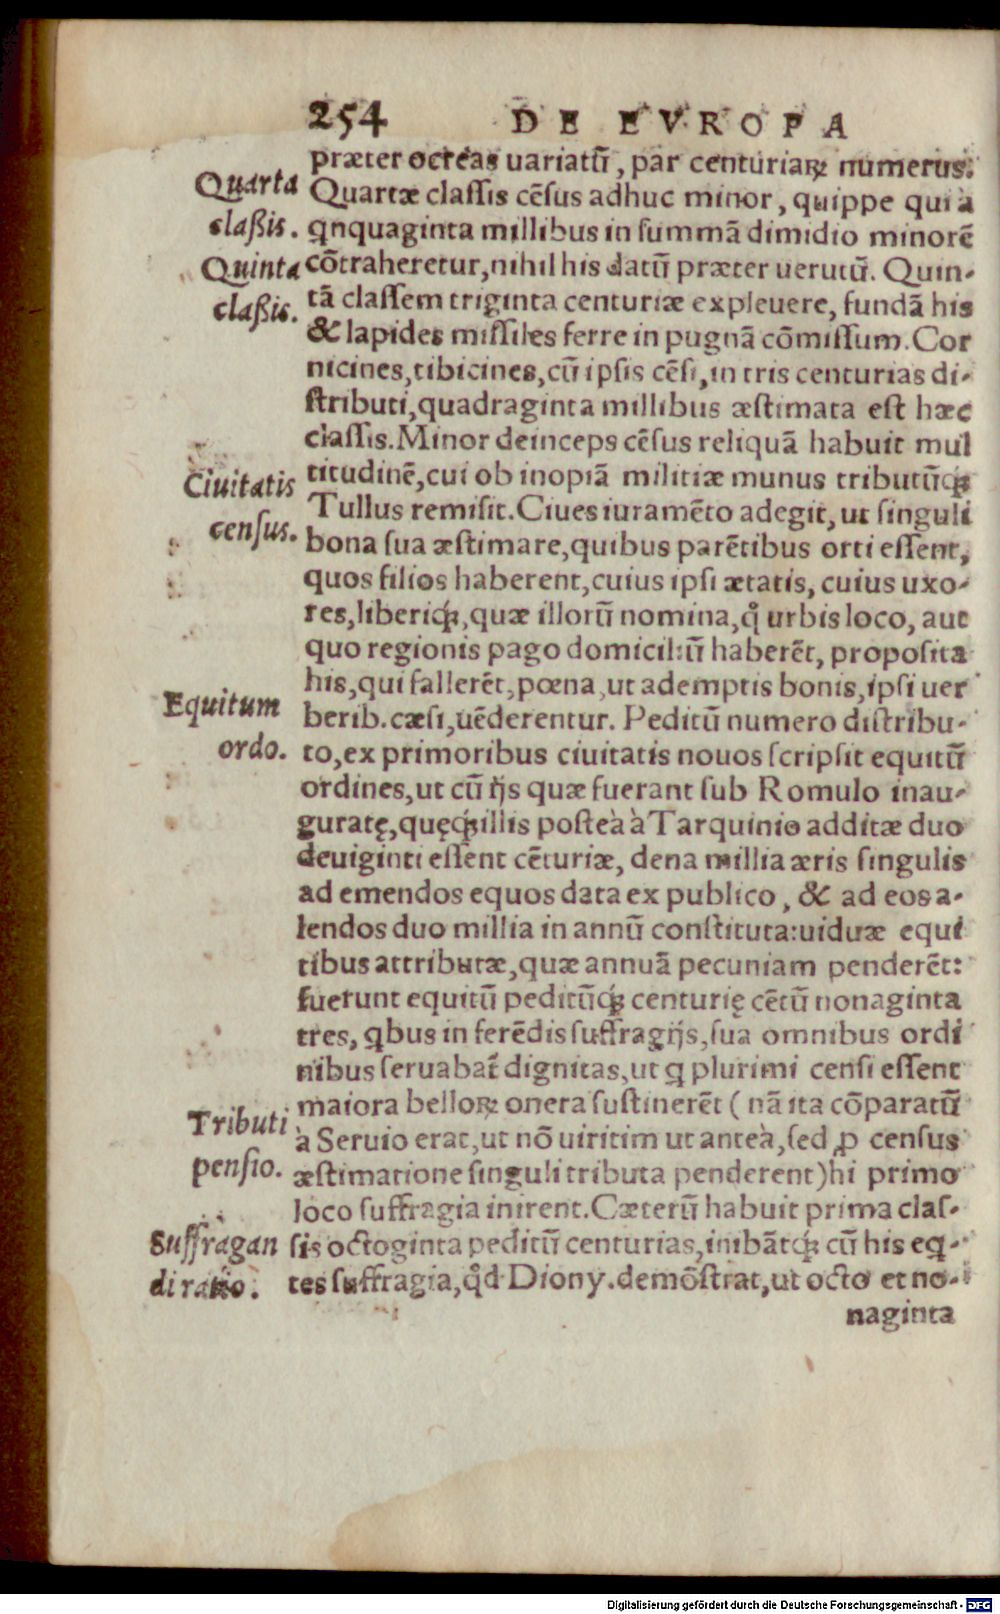 254 DE EVROPA
præter ocreas uariatũ, par centuriaꝝ numerus.
Quarta
claßis.
Quartæ classis cẽsus adhuc minor, quippe qui à
qnquaginta millibus in summã dimidio minorẽ
Quinta
claßis.
cõtraheretur, nihil his datũ præter uerutũ. Quin-
tã classem triginta centuriæ expleuere, fundã his
& lapides missiles ferre in pugnã cõmissum. Cor
nicines, tibicines, cũ ipsis cẽsi, in tris centurias di-
stributi, quadraginta millibus æstimata est hæc
classis. Minor deinceps cẽsus reliquã habuit mul
Ciuitatis
census.
titudinẽ, cui ob inopiã militiæ munus tributũq́;
Tullus remisit. Ciues iuramẽto adegit, ut singuli
bona sua æstimare, quibus parẽtibus orti essent,
quos filios haberent, cuius ipsi ætatis, cuius uxo-
res, liberiq́;, quæ illorũ nomina, q̊ urbis loco, aut
quo regionis pago domiciliũ haberẽt, proposita
his, qui fallerẽt, pœna, ut ademptis bonis, ipsi uer
Equitum
ordo.
berib. cæsi, uẽderentur. Peditũ numero distribu-
to, ex primoribus ciuitatis nouos scripsit equitũ
ordines, ut cũ ijs quæ fuerant sub Romulo inau-
guratę, quęq́; illis posteà à Tarquinio additæ duo
deuiginti essent cẽturiæ, dena millia æris singulis
ad emendos equos data ex publico, & ad eos a-
lendos duo millia in annũ constituta: uiduæ equi
tibus attributæ, quæ annuã pecuniam penderẽt:
fuerunt equitũ peditũq́; centurię cẽtũ nonaginta
tres, qbus in ferẽdis suffragijs, sua omnibus ordi
nibus seruabat᷑ dignitas, ut q plurimi censi essent
Tributi
pensio.
maiora belloꝝ onera sustinerẽt (nã ita cõparatũ
à Seruio erat, ut nõ uiritim ut anteà, sed ꝓ census
æstimatione singuli tributa penderent) hi primo
loco suffragia inirent. Cæterũ habuit prima clas-
Suffragan
di ratio.
sis octoginta peditũ centurias, inibãtq́; cũ his eq-
tes suffragia, q̊d Diony. demõstrat, ut octo et no-
naginta
Digitalisierung gefördert durch die Deutsche Forschungsgemeinschaft - DFG